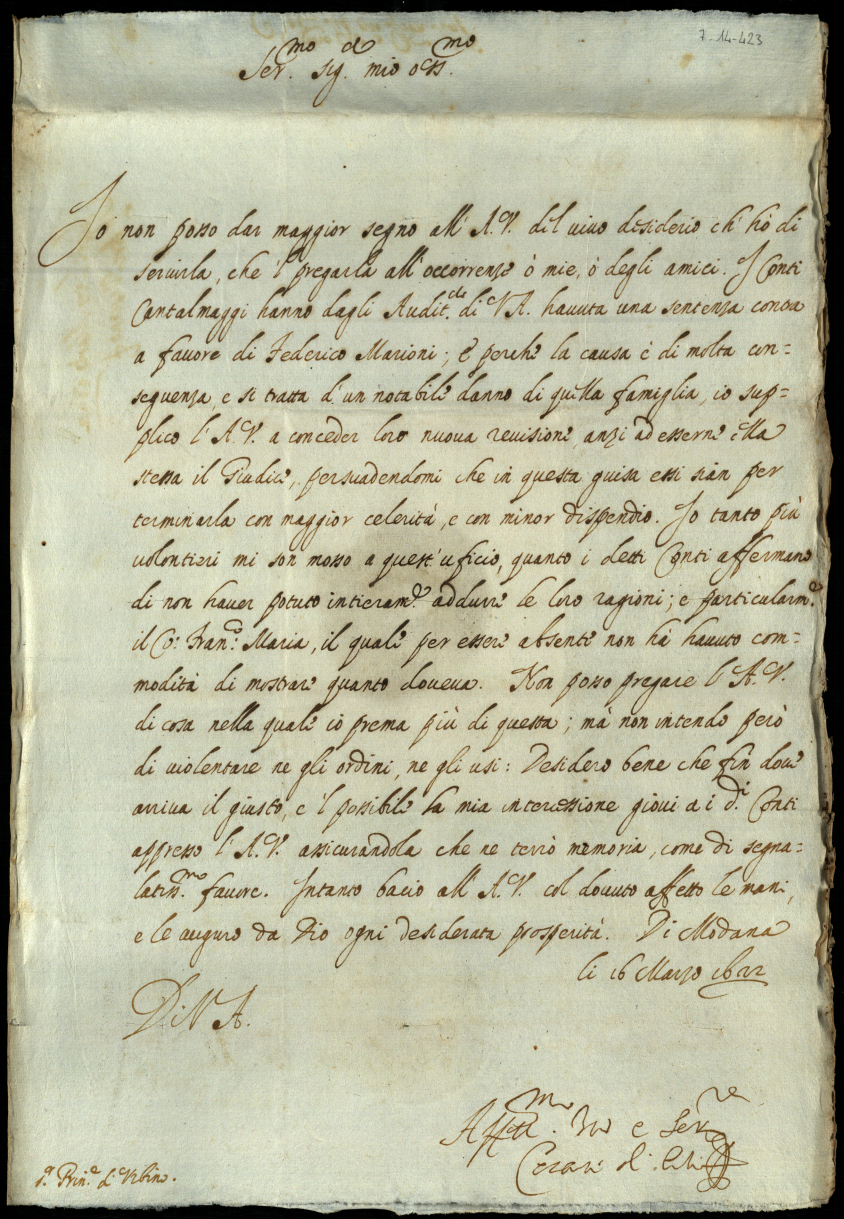 7-14-423
Ser.mo sig.r mio oss.mo
Io non posso dar maggior segno all' A.V. del vivo desiderio ch' hò di
servirla, che 'l pregarla all' occorrenze ò mie, ò degli amici. I Conti
Cantalmaggi hanno dagli Audit.ri di V.A. havuta una sentenza contra
a favore di Federico Marioni; E perche la causa è di molta con=
seguenza, e si tratta d' un notabile danno di quella famiglia, io sup=
plico l' A.V. a conceder loro nuova revisione, anzi ad esserne ella
stessa il Giudice, persuadendomi che in questa guisa essi sian per
terminarla con maggior celerità, e con minor dispendio. Io tanto più
volontieri mi son mosso a quest' uficio, quanto i detti Conti affermano
di non haver potuto intieram.e addurre le loro ragioni; e particolarm.e
il Co: Fran.co Maria, il quale per essere absente non hà havuto com=
modità di mostrare quanto doveva. Non posso pregare l' A.V.
di cosa nella quale io prema più di questa; mà non intendo però
di violentare ne gli ordini, ne gli usi: Desidero bene che fin dove
arriva il giusto, e 'l possibile la mia intercessione giovi a i d.i Conti
appresso l' A.V. assicurandola che ne terrò memoria, come di segna=
latiss.mo favore. Intanto bacio all' A.V. col dovuto affetto le mani,
e le auguro da Dio ogni desiderata prosperità. Di Modana
li 16 Marzo 1622
Di V.A.
Aff.mo e Ser.re
Cesare d' Este
S.r Prin.e d' Urbino.